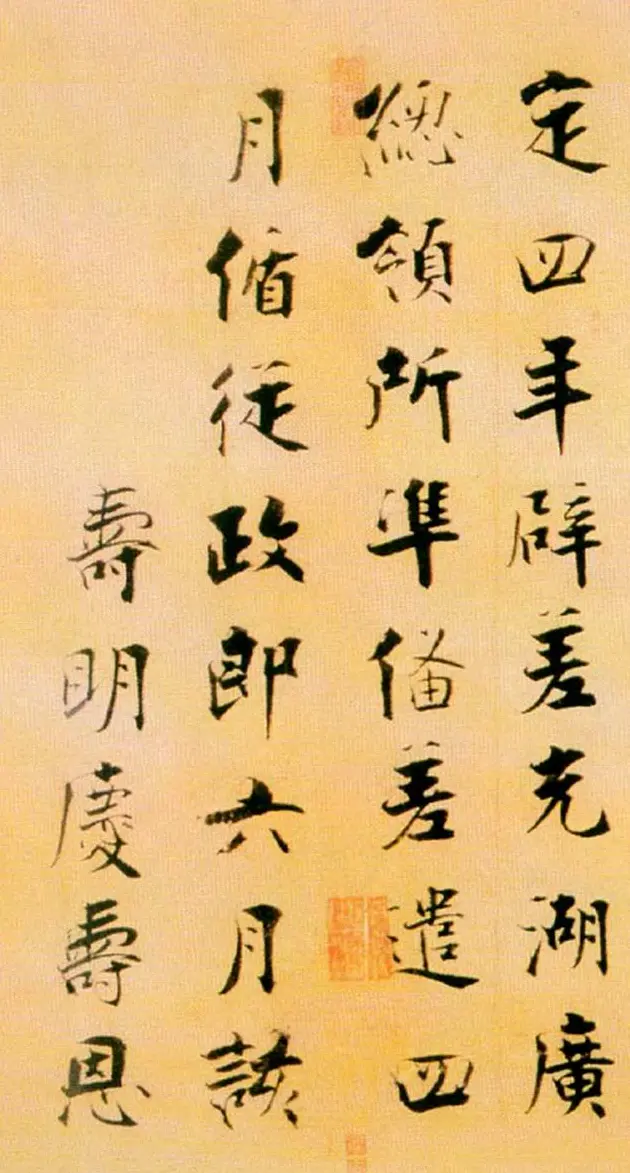 定四年辟差充湖廣
總領所準備差遣四
月循從政郎六月該
壽明慶壽恩